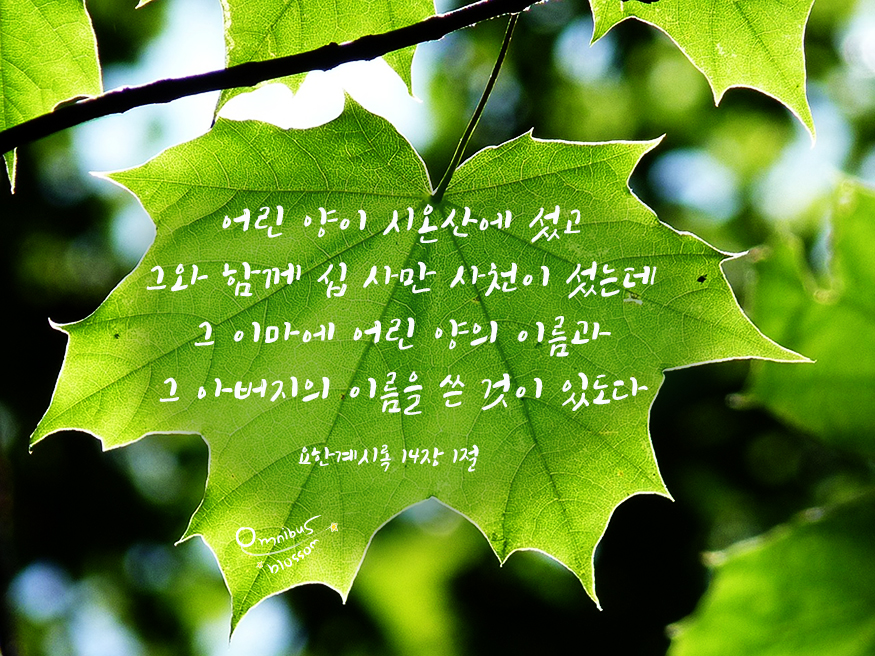 어린 양이 시온산에 섰고
그와 함께 십 사만 사천이 섰는데
그 이마에 어린 양의 이름과
그 아버지의 이름을 쓴 것이 있도다
요한계시록 14장 1절
Omnibus
blossom